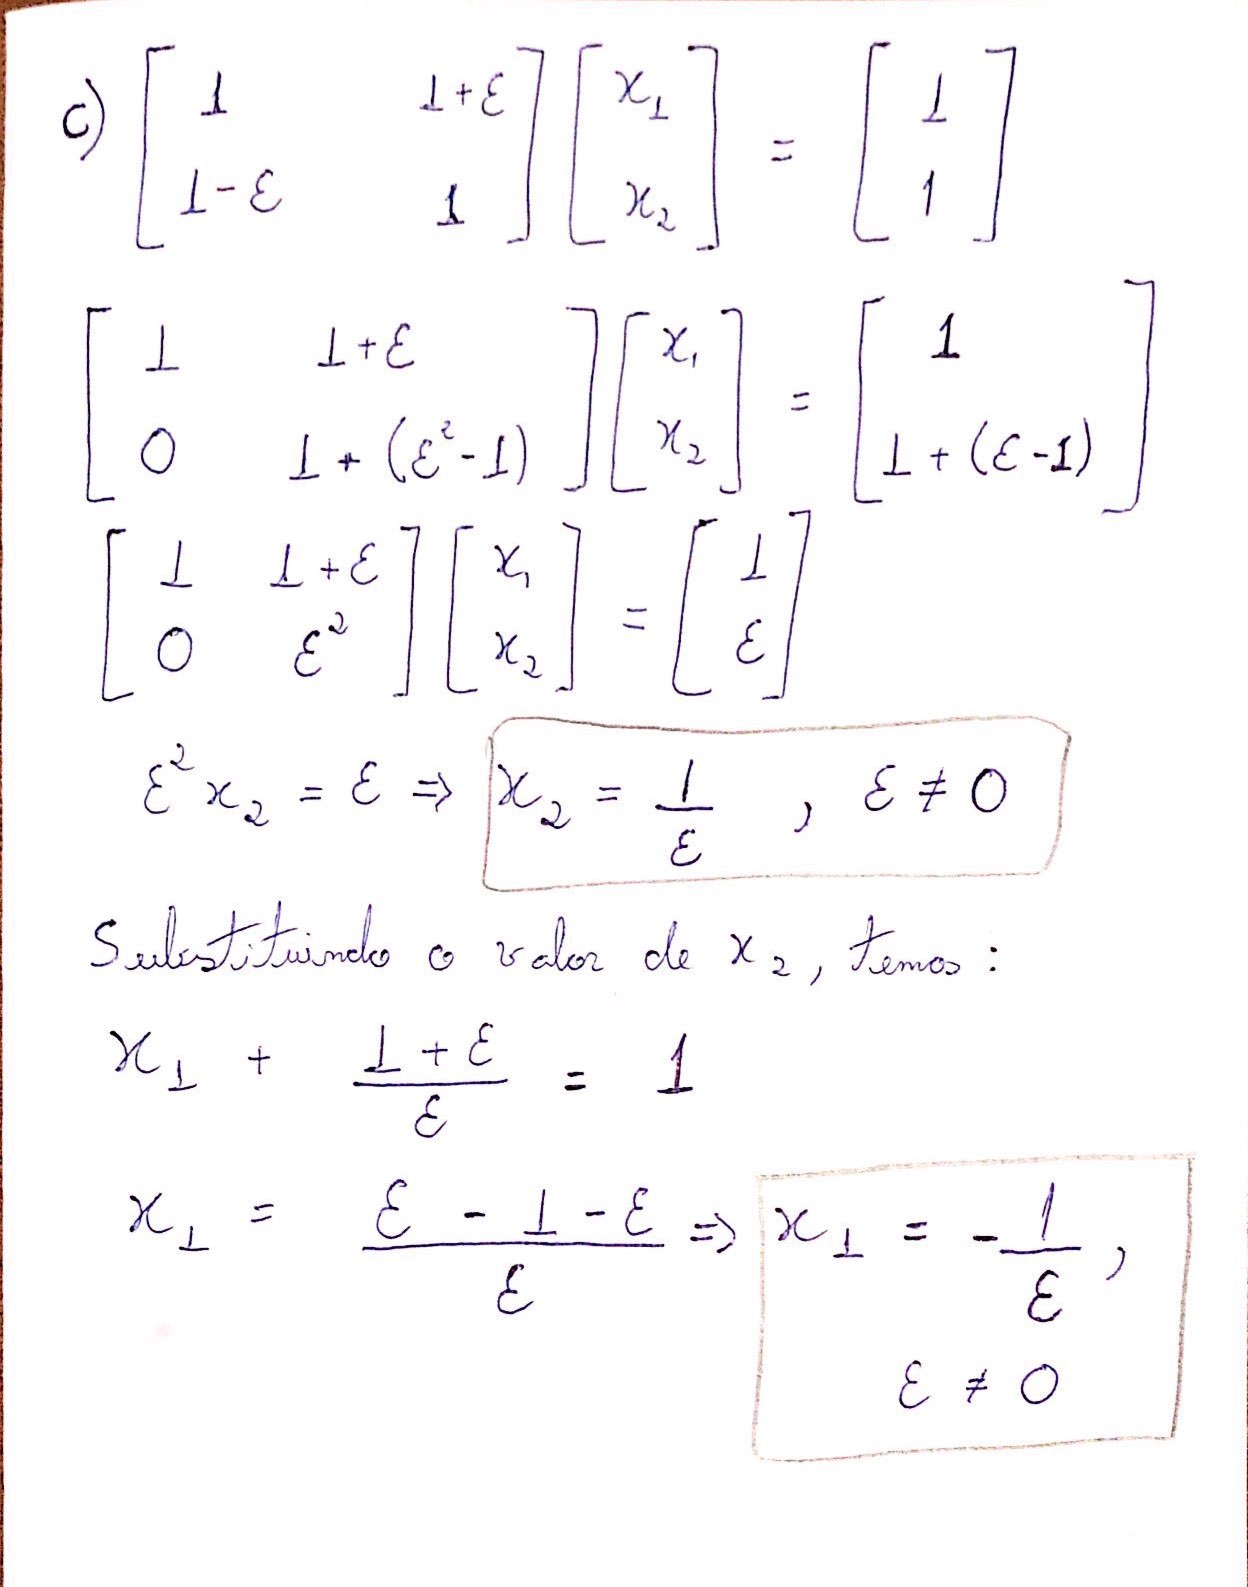 c) [ 1 1+ε ; 1-ε 1 ] [ x₁ ; x₂ ] = [ 1 ; 1 ]
[ 1 1+ε ; 0 1+(ε²-1) ] [ x₁ ; x₂ ] = [ 1 ; 1+(ε-1) ]
[ 1 1+ε ; 0 ε² ] [ x₁ ; x₂ ] = [ 1 ; ε ]
ε² x₂ = ε ⇒ x₂ = 1/ε , ε ≠ 0
Substituindo o valor de x₂, temos:
x₁ + (1+ε)/ε = 1
x₁ = (ε - 1 - ε)/ε ⇒ x₁ = -1/ε ,
ε ≠ 0